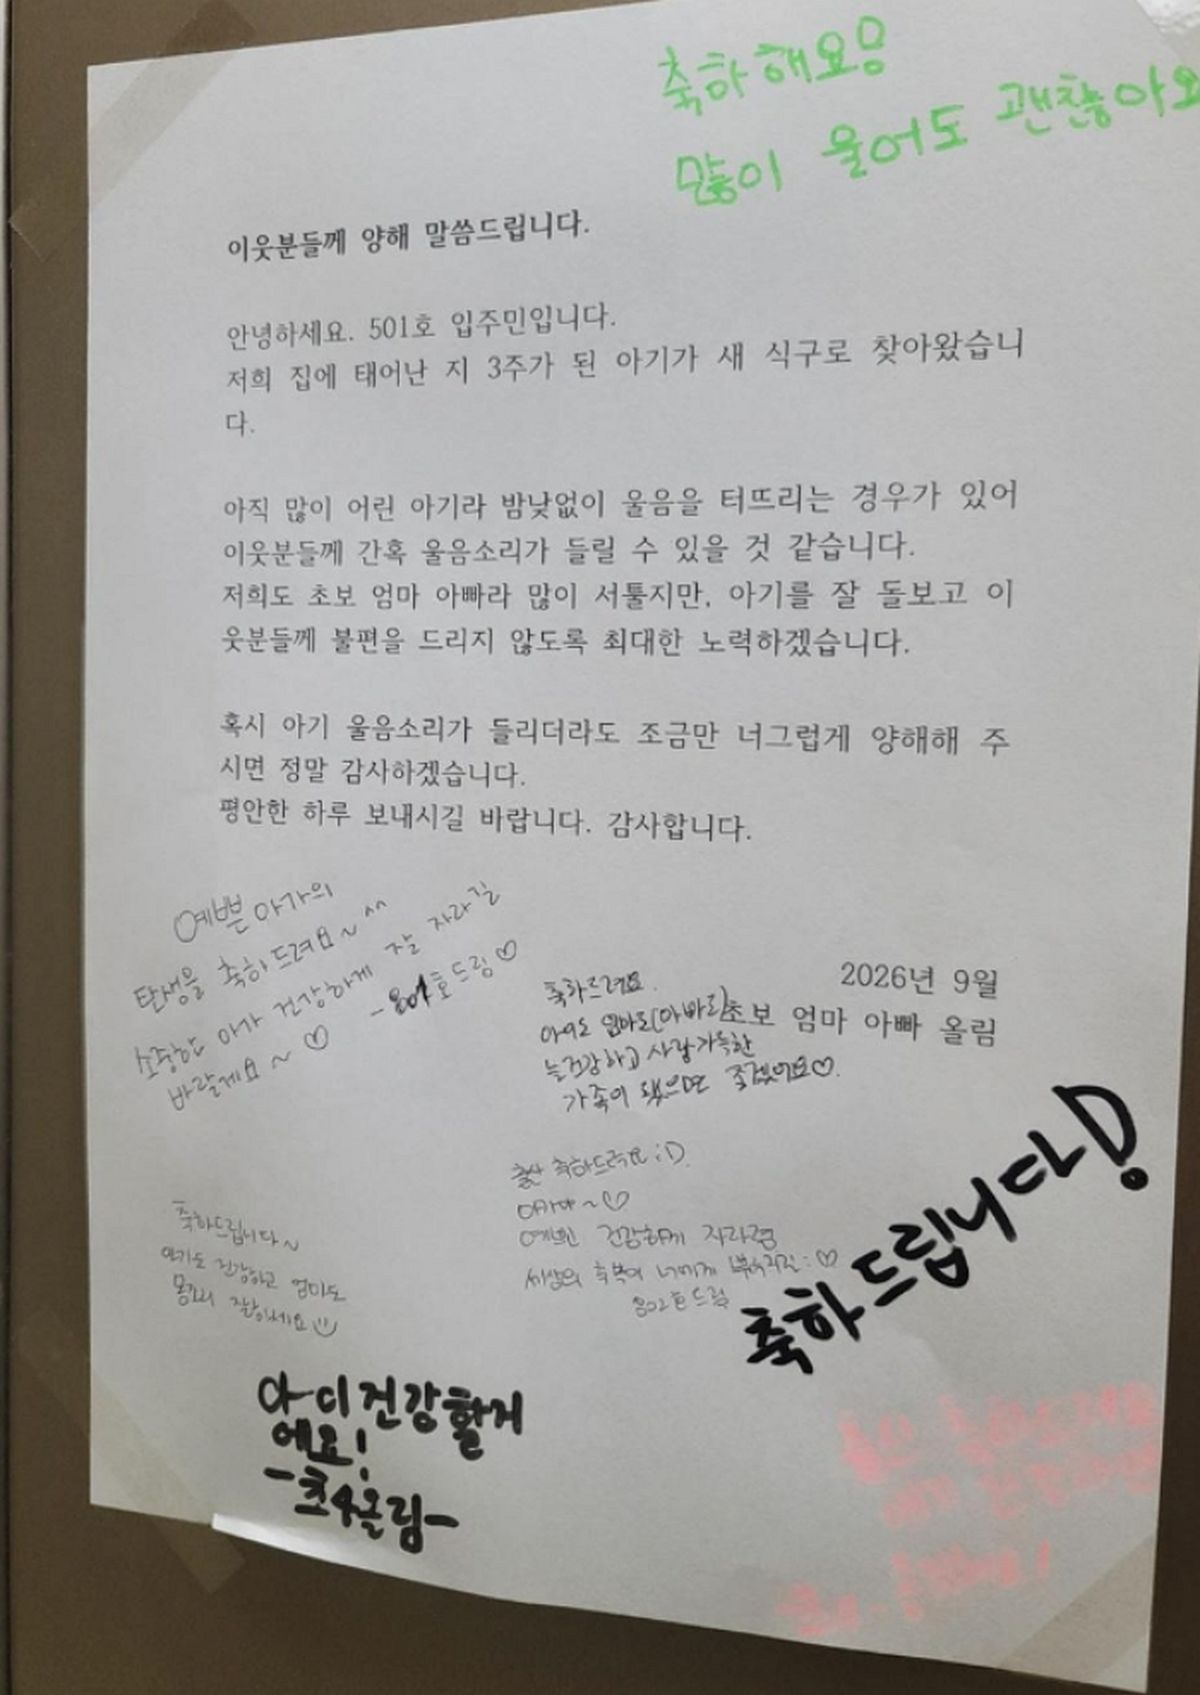 축하해요!
많이 울어도 괜찮아요
이웃분들께 양해 말씀드립니다.
안녕하세요. 501호 입주민입니다.
저희 집에 태어난 지 3주가 된 아기가 새 식구로 찾아왔습니
다.
아직 많이 어린 아기라 밤낮없이 울음을 터뜨리는 경우가 있어
이웃분들께 간혹 울음소리가 들릴 수 있을 것 같습니다.
저희도 초보 엄마 아빠라 많이 서툴지만, 아기를 잘 돌보고 이
웃분들께 불편을 드리지 않도록 최대한 노력하겠습니다.
혹시 아기 울음소리가 들리더라도 조금만 너그럽게 양해해 주
시면 정말 감사하겠습니다.
평안한 하루 보내시길 바랍니다. 감사합니다.
2026년 9월
초보 엄마 아빠 올림
예쁜 아가의
탄생을 축하드려요~^^
소중한 아가 건강하게 잘 자라길
바랄게요~♡
호드림♡
축하드려요.
늘건강하고 사랑가득한
가족이 됐으면 좋겠어요♡.
출산 축하드려요 :D
아가야~♡
예쁘 건강하게 자라렴
세상의 축복이 너에게 :♡
802호드림
축하드립니다~
아기도 건강하고 엄마도
몸조리 잘하세요
축하드립니다!
아이건강할거
에요!
-초4올림-
출산 축하드려요